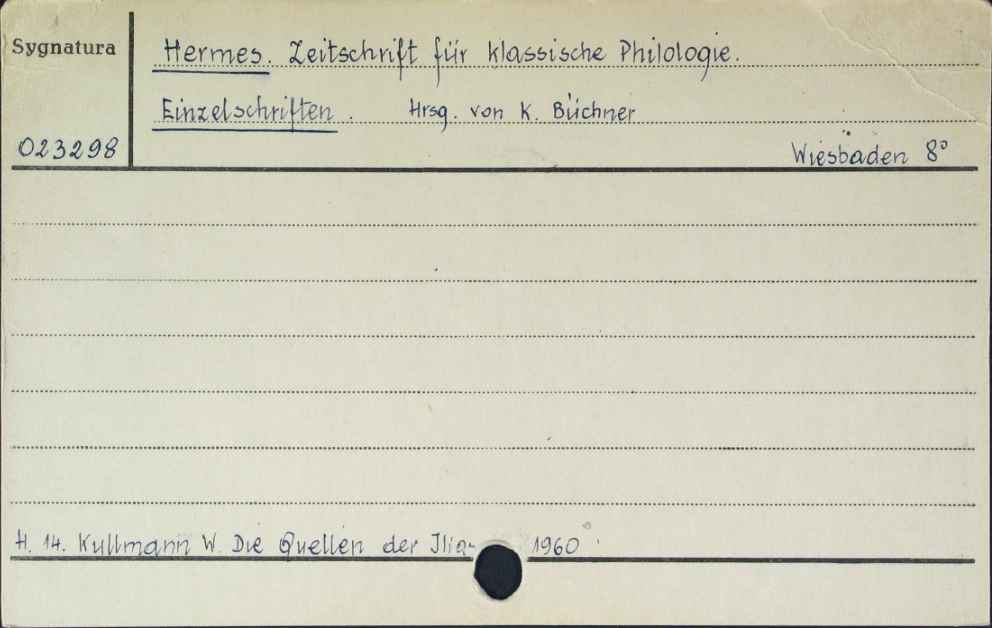 Sygnatura
Hermes. Zeitschrift für klassische Philologie.
Einzelschriften. Hrsg. von K. Büchner
023298
Wiesbaden 8°
H. 14. Kullmann W. Die Quellen der 1960